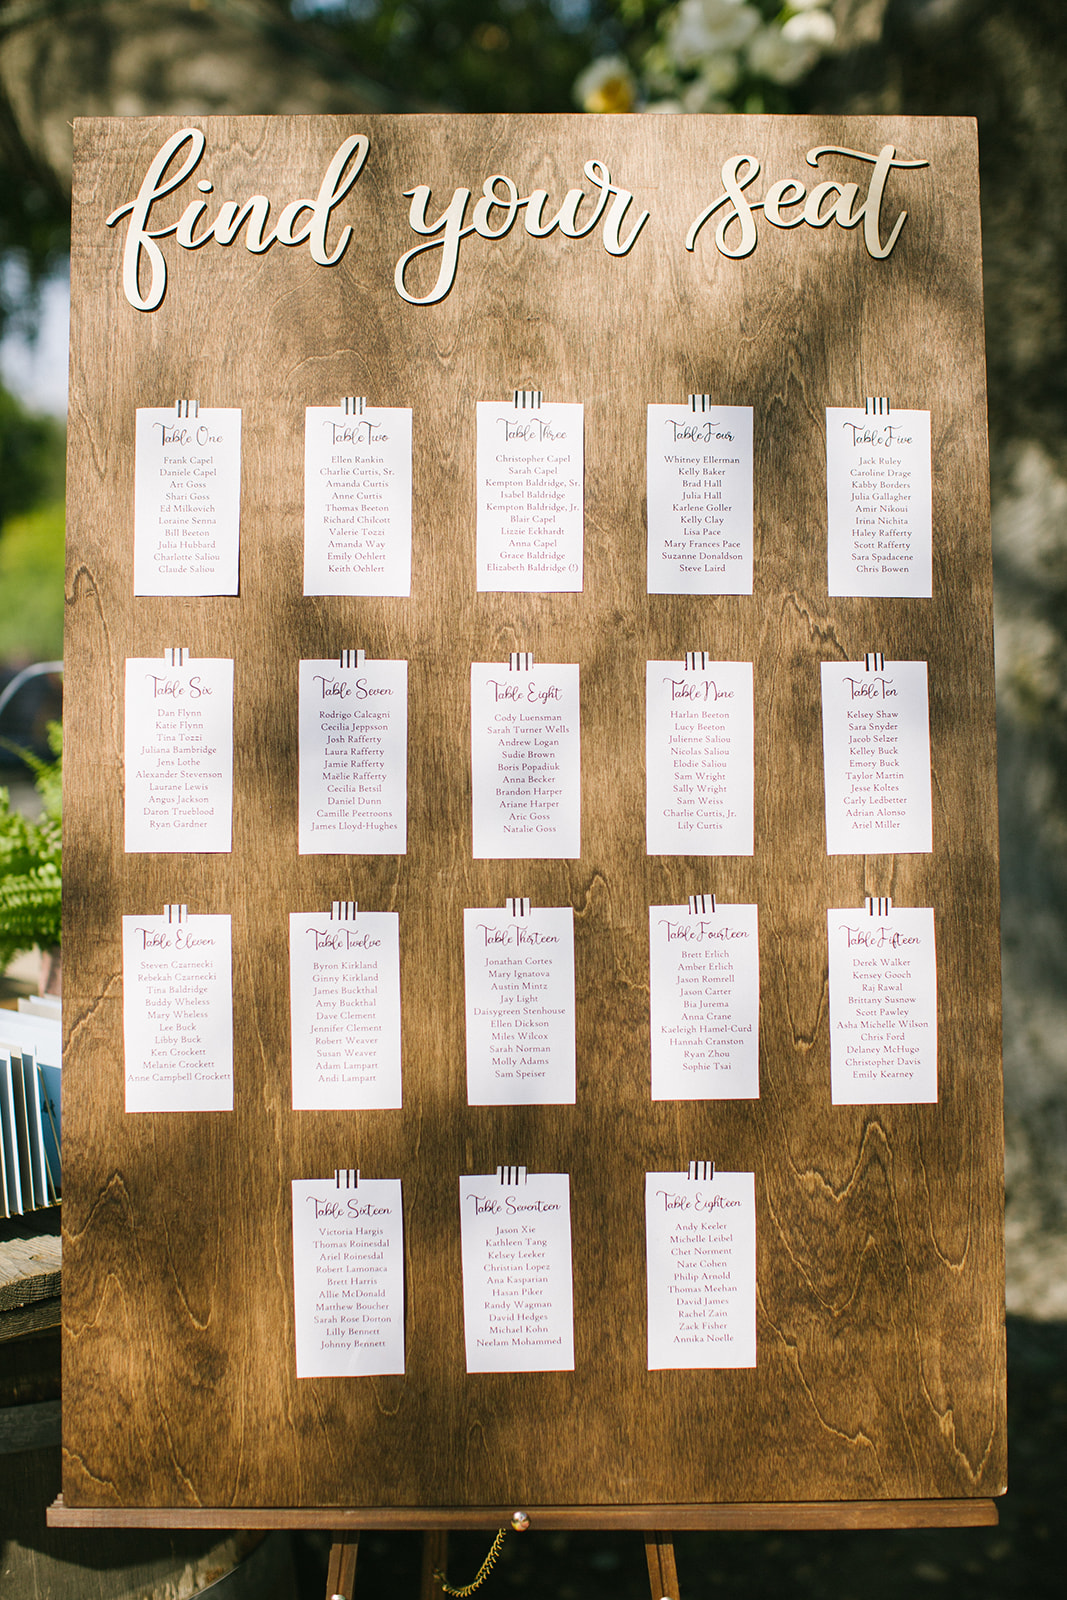 find your seat
Table One
Frank Capel
Daniele Capel
Art Goss
Shari Goss
Ed Milkovich
Loraine Senna
Bill Beeton
Julia Hubbard
Charlotte Saliou
Claude Saliou
Table Two
Ellen Rankin
Charlie Curtis, Sr.
Amanda Curtis
Anne Curtis
Thomas Beeton
Richard Chilcott
Valerie Tozzi
Amanda Way
Emily Oehlert
Keith Oehlert
Table Three
Christopher Capel
Sarah Capel
Kempton Baldridge, Sr.
Isabel Baldridge
Kempton Baldridge, Jr.
Blair Capel
Lizzie Eckhardt
Anna Capel
Grace Baldridge
Elizabeth Baldridge (!)
Table Four
Whitney Ellerman
Kelly Baker
Brad Hall
Julia Hall
Karlene Goller
Kelly Clay
Lisa Pace
Mary Frances Pace
Suzanne Donaldson
Steve Laird
Table Five
Jack Ruley
Caroline Drage
Kabby Borders
Julia Gallagher
Amir Nikoui
Irina Nichita
Haley Rafferty
Scott Rafferty
Sara Spadacene
Chris Bowen
Table Six
Dan Flynn
Katie Flynn
Tina Tozzi
Juliana Bambridge
Jens Lothe
Alexander Stevenson
Laurane Lewis
Angus Jackson
Daron Trueblood
Ryan Gardner
Table Seven
Rodrigo Calcagni
Cecilia Jeppsson
Josh Rafferty
Laura Rafferty
Jamie Rafferty
Maëlie Rafferty
Cecilia Betsil
Daniel Dunn
Camille Peetroons
James Lloyd-Hughes
Table Eight
Cody Luensman
Sarah Turner Wells
Andrew Logan
Sudie Brown
Boris Popadiuk
Anna Becker
Brandon Harper
Ariane Harper
Aric Goss
Natalie Goss
Table Nine
Harlan Beeton
Lucy Beeton
Julienne Saliou
Nicolas Saliou
Elodie Saliou
Sam Wright
Sally Wright
Sam Weiss
Charlie Curtis, Jr.
Lily Curtis
Table Ten
Kelsey Shaw
Sara Snyder
Jacob Selzer
Kelley Buck
Emory Buck
Taylor Martin
Jesse Koltes
Carly Ledbetter
Adrian Alonso
Ariel Miller
Table Eleven
Steven Czarnecki
Rebekah Czarnecki
Tina Baldridge
Buddy Wheless
Mary Wheless
Lee Buck
Libby Buck
Ken Crockett
Melanie Crockett
Anne Campbell Crockett
Table Twelve
Byron Kirkland
Ginny Kirkland
James Buckthal
Amy Buckthal
Dave Clement
Jennifer Clement
Robert Weaver
Susan Weaver
Adam Lampart
Andi Lampart
Table Thirteen
Jonathan Cortes
Mary Ignatova
Austin Mintz
Jay Light
Daisygreen Stenhouse
Ellen Dickson
Miles Wilcox
Sarah Norman
Molly Adams
Sam Speiser
Table Fourteen
Brett Erlich
Amber Erlich
Jason Romrell
Jason Carter
Bia Jurema
Anna Crane
Kaeleigh Hamel-Curd
Hannah Cranston
Ryan Zhou
Sophie Tsai
Table Fifteen
Derek Walker
Kensey Gooch
Raj Rawal
Brittany Susnow
Scott Pawley
Asha Michelle Wilson
Chris Ford
Delaney McHugo
Christopher Davis
Emily Kearney
Table Sixteen
Victoria Hargis
Thomas Roinesdal
Ariel Roinesdal
Robert Lamonaca
Brett Harris
Allie McDonald
Matthew Boucher
Sarah Rose Dorton
Lilly Bennett
Johnny Bennett
Table Seventeen
Jason Xie
Kathleen Tang
Kelsey Leeker
Christian Lopez
Ana Kasparian
Hasan Piker
Randy Wagman
David Hedges
Michael Kohn
Neelam Mohammed
Table Eighteen
Andy Keeler
Michelle Leibel
Chet Norment
Nate Cohen
Philip Arnold
Thomas Meehan
David James
Rachel Zain
Zack Fisher
Annika Noelle